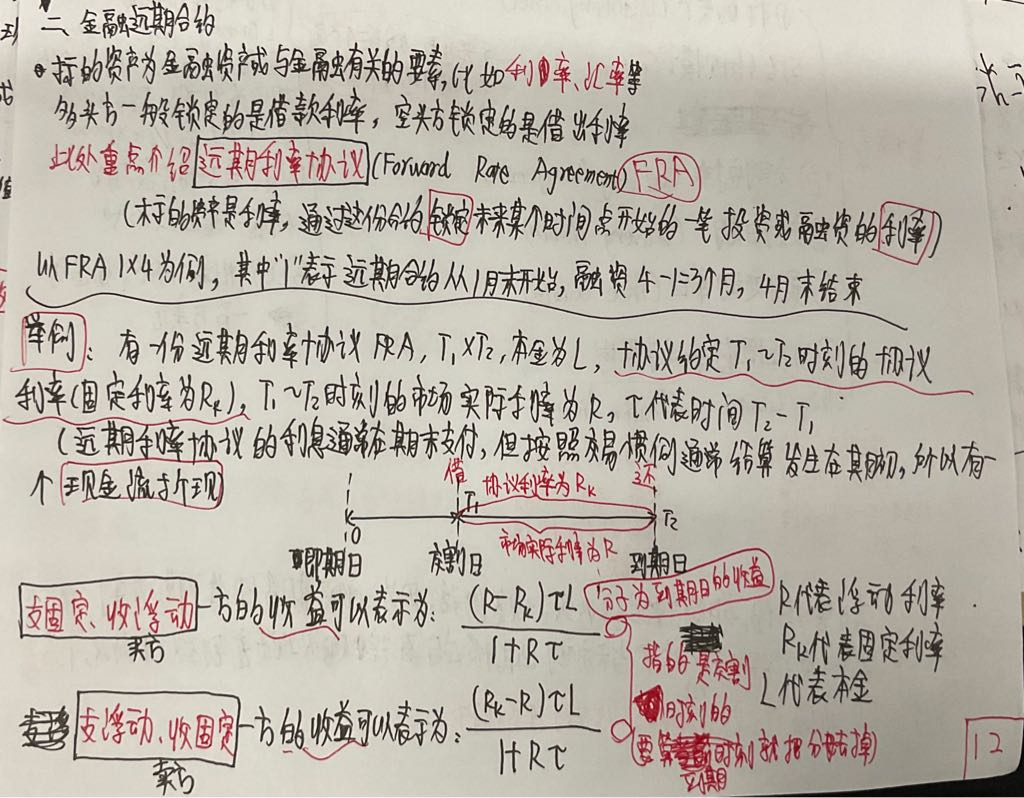 二、金融远期合约
标的资产为金融资产或与金融有关的要素，比如利率、汇率等
多头方一般锁定的是借款利率，空头方锁定的是借出利率
此处重点介绍 远期利率协议 (Forward Rate Agreement) FRA
(标的资产是利率，通过这份合约锁定未来某个时间点开始的一笔投资或融资的利率)
以FRA 1×4为例，其中"1"表示远期合约从1月末开始，融资4-1=3个月，4月末结束
举例：有一份远期利率协议FRA，T₁×T₂，本金为L，协议约定T₁~T₂时刻的协议
利率(固定利率为Rₖ)，T₁~T₂时刻的市场实际利率为R，τ代表时间T₂-T₁
(远期利率协议的利息通常在期末支付，但按照交易惯例通常结算发生在期初，所以有一
个现金流折现)
借 协议利率为Rₖ 还
0 T₁ T₂
市场实际利率为R
即期日 交割日 到期日
支固定、收浮动一方的收益可以表示为：(R-Rₖ)τL / 1+Rτ
卖方
分子为到期日的收益
指的是交割
时刻的
(要算到期时刻就把分母去掉)
R代表浮动利率
Rₖ代表固定利率
L代表本金
支浮动、收固定一方的收益可以表示为：(Rₖ-R)τL / 1+Rτ
卖方
12